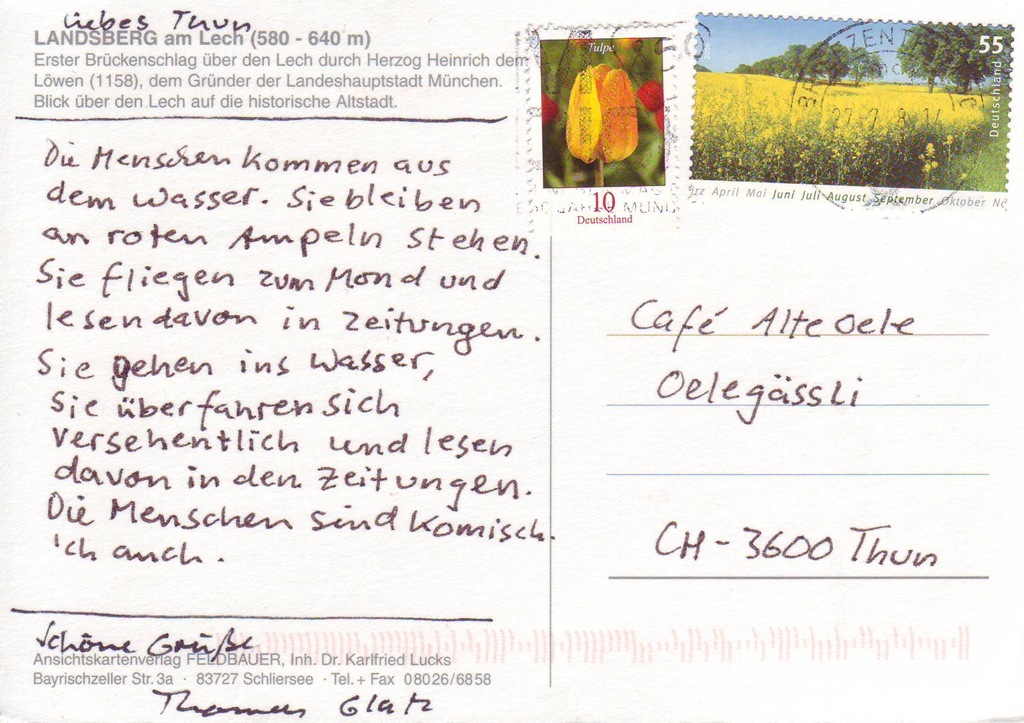 Liebes Thun
LANDSBERG am Lech (580 - 640 m)
Erster Brückenschlag über den Lech durch Herzog Heinrich dem
Löwen (1158), dem Gründer der Landeshauptstadt München.
Blick über den Lech auf die historische Altstadt.
Die Menschen kommen aus
dem Wasser. Sie bleiben
an roten Ampeln stehen.
Sie fliegen zum Mond und
lesen davon in Zeitungen.
Sie gehen ins Wasser,
Sie überfahren sich
versehentlich und lesen
davon in den Zeitungen.
Die Menschen sind komisch.
Ich auch.
Schöne Grüße
Ansichtskartenverlag FELDBAUER, Inh. Dr. Karlfried Lucks
Bayrischzeller Str. 3a · 83727 Schliersee · Tel. + Fax 08026/6858
Thomas Glatz
Tulpe
10
Deutschland
55
Deutschland
ZENT
April Mai Juni Juli August September Oktober
Café Alte Oele
Oelegässli
CH-3600 Thun